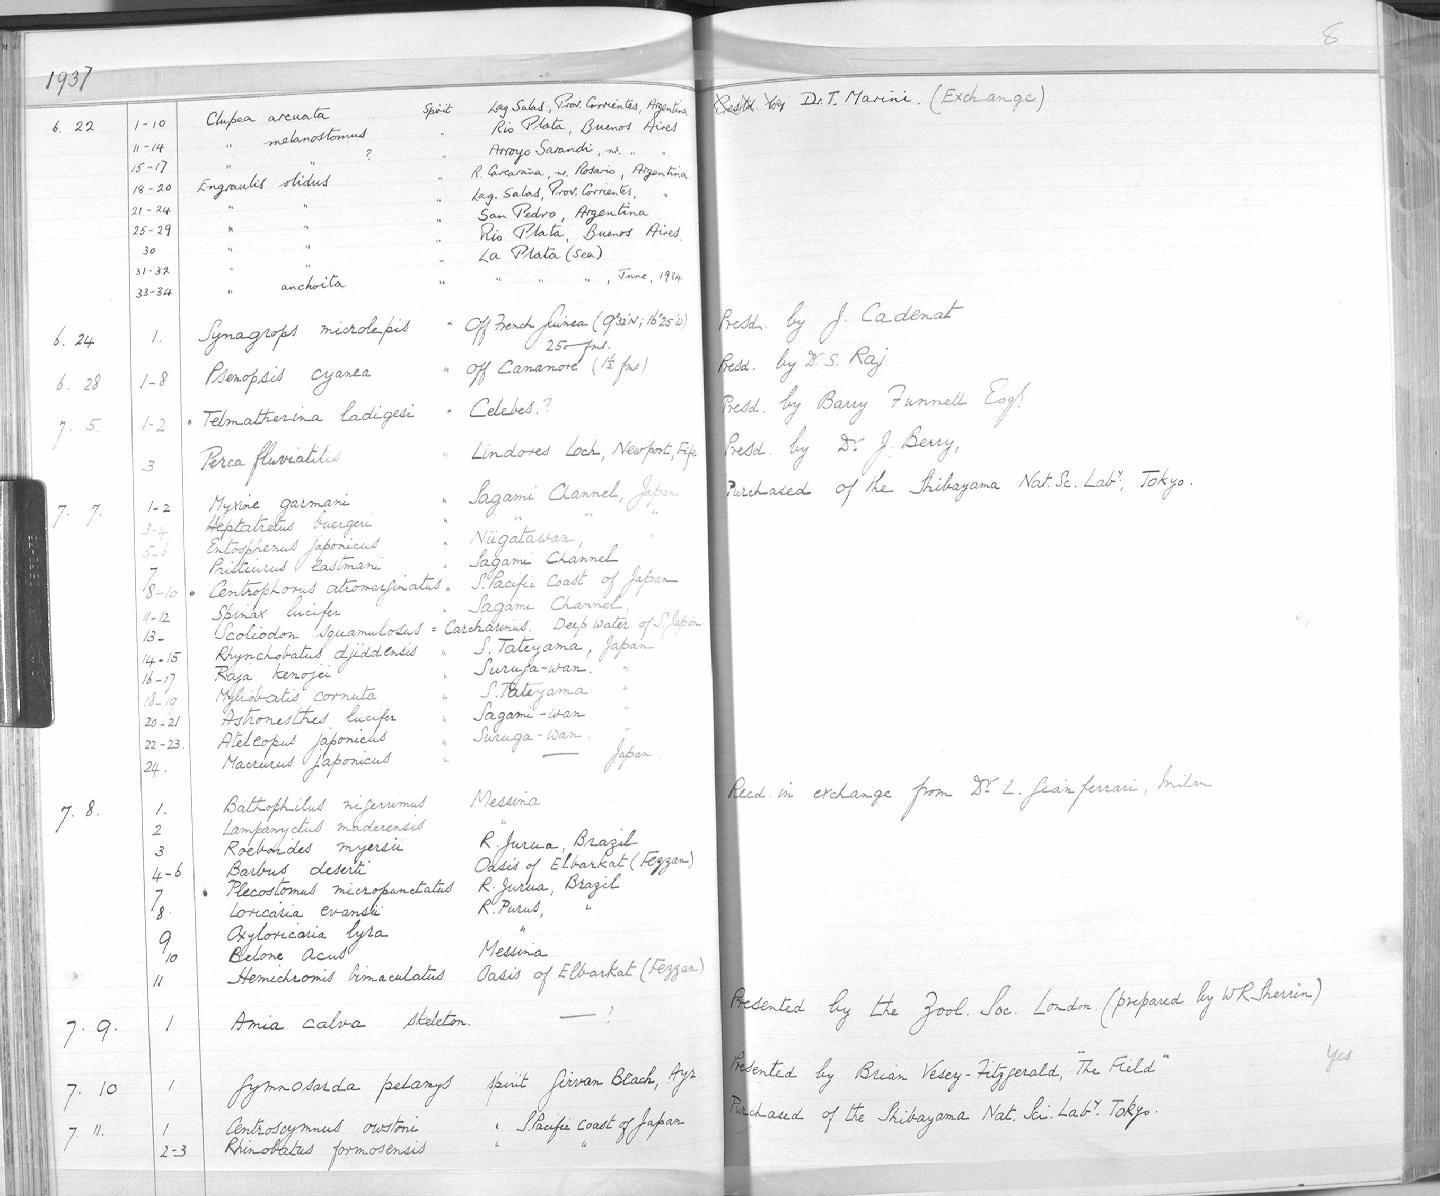 8
1937
6. 22 1-10 Clupea arcuata Spirit Lag. Salas, Prov. Corrientes, Argentina Presd. by Dr. T. Marini. (Exchange)
11-14 " melanostomus " Rio Plata, Buenos Aires
15-17 " " ? " Arroyo Sarandi, nr. " "
18-20 Engraulis olidus " R. Carcaraña, nr. Rosario, Argentina
21-24 " " " Lag. Salas, Prov. Corrientes, "
25-29 " " " San Pedro, Argentina
30 " " " Rio Plata, Buenos Aires
31-32 " " " La Plata (Sea)
33-34 " anchoita " " " " , June, 1934
6. 24 1. Synagrops microlepis " Off French Guinea (9°32'N; 16°25'W) Presd. by J. Cadenat
250 fms.
6. 28 1-8 Psenopsis cyanea " Off Cananore (1½ fms) Presd. by Dr. S. Raj
7. 5. 1-2 Telmatherina ladigesi " Celebes.? Presd. by Barry Funnell Esqr.
3 Perca fluviatilis " Lindores Loch, Newport, Fife Presd. by Dr. J. Berry,
7. 7. 1-2 Myxine garmani " Sagami Channel, Japan Purchased of the Shibayama Nat. Sc. Laby., Tokyo.
3-4 Heptatretus buergeri " " " "
5-6 Entosphenus japonicus " Niigatawan, "
7 Pristiurus eastmani " Sagami Channel
8-10 Centrophorus atromarginatus " S. Pacific Coast of Japan
11-12 Spinax lucifer " Sagami Channel,
13- Scoliodon squamulosus = Carcharinus. Deep water of S. Japan
14-15 Rhynchobatus djiddensis " S. Tateyama, Japan
16-17 Raja kenojei " Suruga-wan. "
18-19 Myliobatis cornuta " S. Tateyama "
20-21 Astronesthes lucifer " Sagami-wan "
22-23. Ateleopus japonicus " Suruga-wan. "
24. Macrurus japonicus " — Japan.
7. 8. 1. Bathophilus nigerrimus Messina Recd. in exchange from Dr. L. Gianferrari, Milan
2 Lampanyctus maderensis "
3 Roeboides myersii R. Jurua, Brazil
4-6 Barbus deserti Oasis of Elbarkat (Fezzan)
7 Plecostomus micropunctatus R. Jurua, Brazil
8. Loricaria evansii R. Purus, "
9 Oxyloricaria lyra "
10 Belone acus Messina
11 Hemichromis bimaculatus Oasis of Elbarkat (Fezzan)
7. 9. 1 Amia calva skeleton. — ? Presented by the Zool. Soc. London. (prepared by W R Sherrin)
7. 10 1 Gymnosarda pelamys spirit Girvan Beach, Ayr Presented by Brian Vesey-Fitzgerald, "The Field" Yes
7. 11. 1 Centroscymnus owstoni " S. Pacific coast of Japan Purchased of the Shibayama Nat. Sci. Laby. Tokyo.
2-3 Rhinobatus formosensis " "